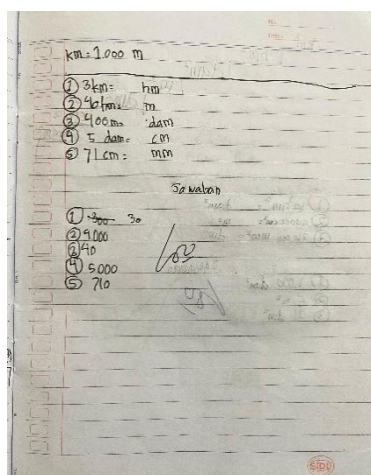 km = 1.000 m
① 3 km = hm
② 40 hm = m
③ 400 m = dam
④ 5 dam = cm
⑤ 71 cm = mm
Jawaban
① 300 30
② 4.000
③ 40
④ 5.000
⑤ 710
100
SIDU